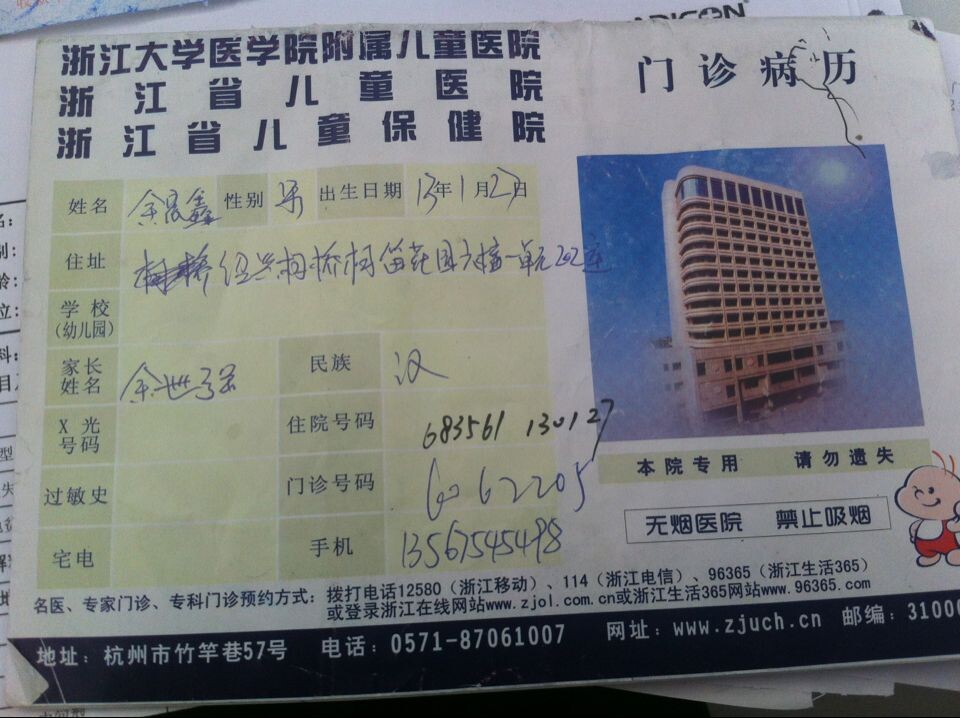 ADICON
浙江大学医学院附属儿童医院
浙江省儿童医院
浙江省儿童保健院
门诊病历
姓名 余晟鑫 性别 男 出生日期 13年1月27日
住址 绍兴柯桥柯笛花园六幢一单元202室
学校
(幼儿园)
家长姓名 余世强 民族 汉
X光号码 住院号码 683561 130127
过敏史 门诊号码 6062205
宅电 手机 13567545498
本院专用 请勿遗失
无烟医院 禁止吸烟
名医、专家门诊、专科门诊预约方式：拨打电话12580（浙江移动）、114（浙江电信）、96365（浙江生活365）
或登录浙江在线网站www.zjol.com.cn或浙江生活365网站www.96365.com
地址：杭州市竹竿巷57号 电话：0571-87061007 网址：www.zjuch.cn 邮编：31000